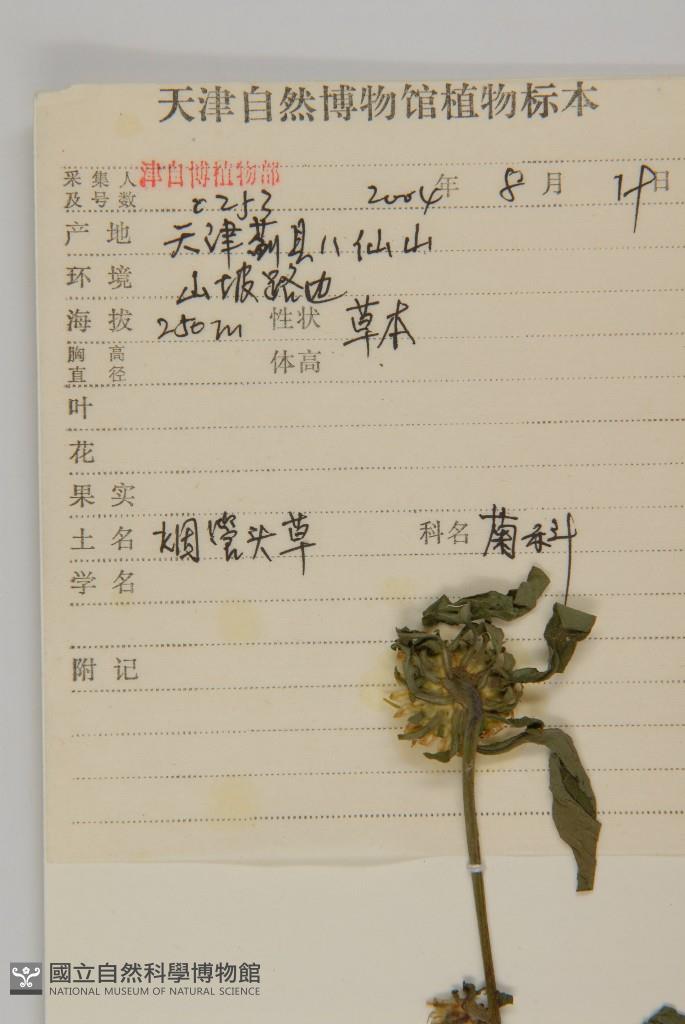 天津自然博物馆植物标本
采集人 津自博植物部
及号数 0253 2004年 8月 19日
产地 天津蓟县八仙山
环境 山坡路边
海拔 250m 性状 草本
胸高
直径 体高
叶
花
果实
土名 烟管头草 科名 菊科
学名
附记
國立自然科學博物館
NATIONAL MUSEUM OF NATURAL SCIENCE